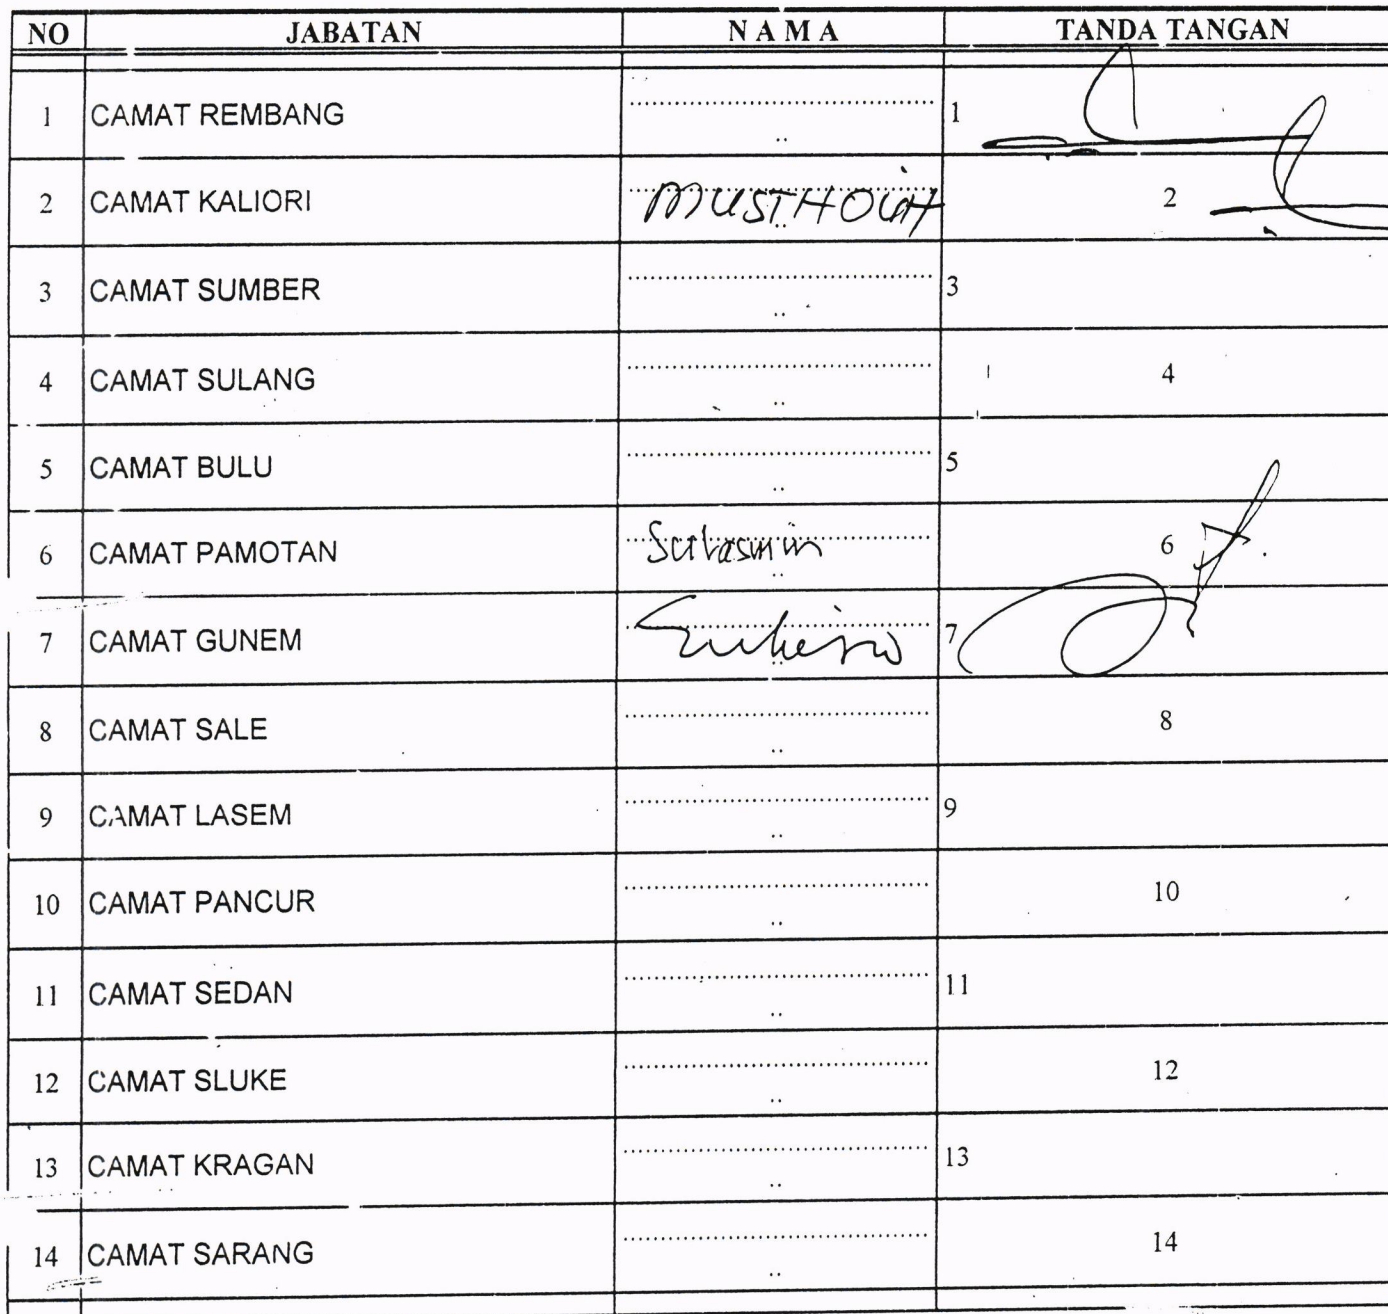 NO JABATAN N A M A TANDA TANGAN
1 CAMAT REMBANG ........................................ .. 1
2 CAMAT KALIORI ........................................ .. 2
3 CAMAT SUMBER ........................................ .. 3
4 CAMAT SULANG ........................................ .. 4
5 CAMAT BULU ........................................ .. 5
6 CAMAT PAMOTAN ........................................ .. 6
7 CAMAT GUNEM ........................................ .. 7
8 CAMAT SALE ........................................ .. 8
9 CAMAT LASEM ........................................ .. 9
10 CAMAT PANCUR ........................................ .. 10
11 CAMAT SEDAN ........................................ .. 11
12 CAMAT SLUKE ........................................ .. 12
13 CAMAT KRAGAN ........................................ .. 13
14 CAMAT SARANG ........................................ .. 14